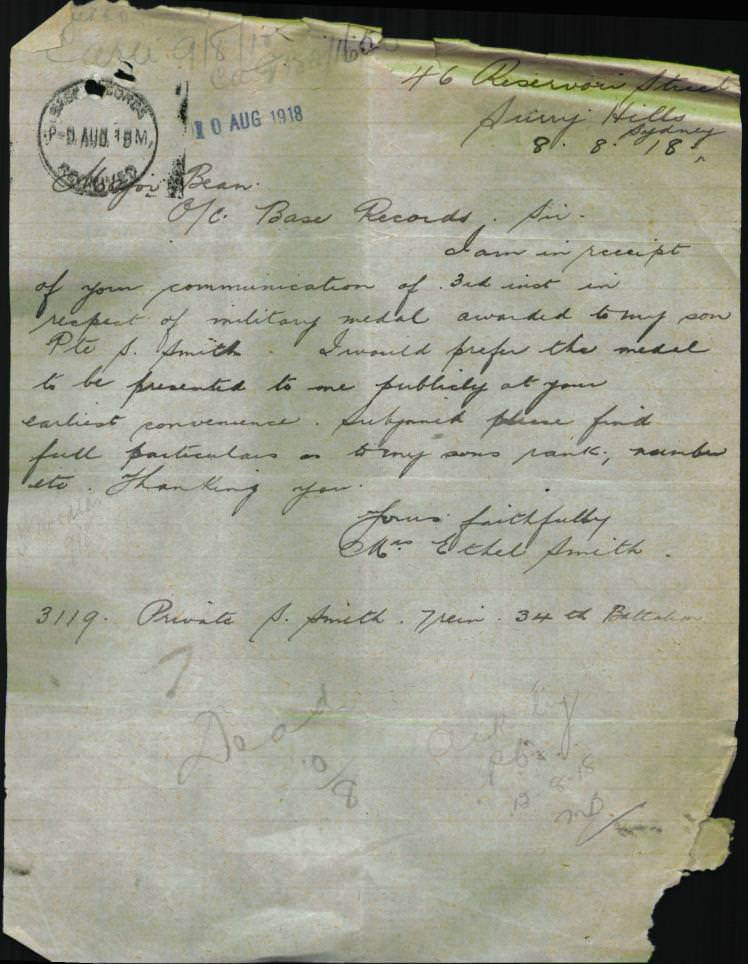 9/8/18
46 Reservori Street
Surry Hills
Sydney
8. 8. 18.
BASE RECORDS
9 AUG 18
RECEIVED
10 AUG 1918
Major Bean.
O/C. Base Records. Sir.
I am in receipt
of your communication of 3rd inst in
respect of military medal awarded to my son
Pte S. Smith. I would prefer the medal
to be presented to me publicly at your
earliest convenience. Subjoined please find
full particulars as to my sons rank, number
etc. Thanking you.
Yours faithfully
Mrs Ethel Smith.
3119. Private S. Smith. 7 rein. 34th Battalion
Dead
10/8
Ack by
PC
13-8-18